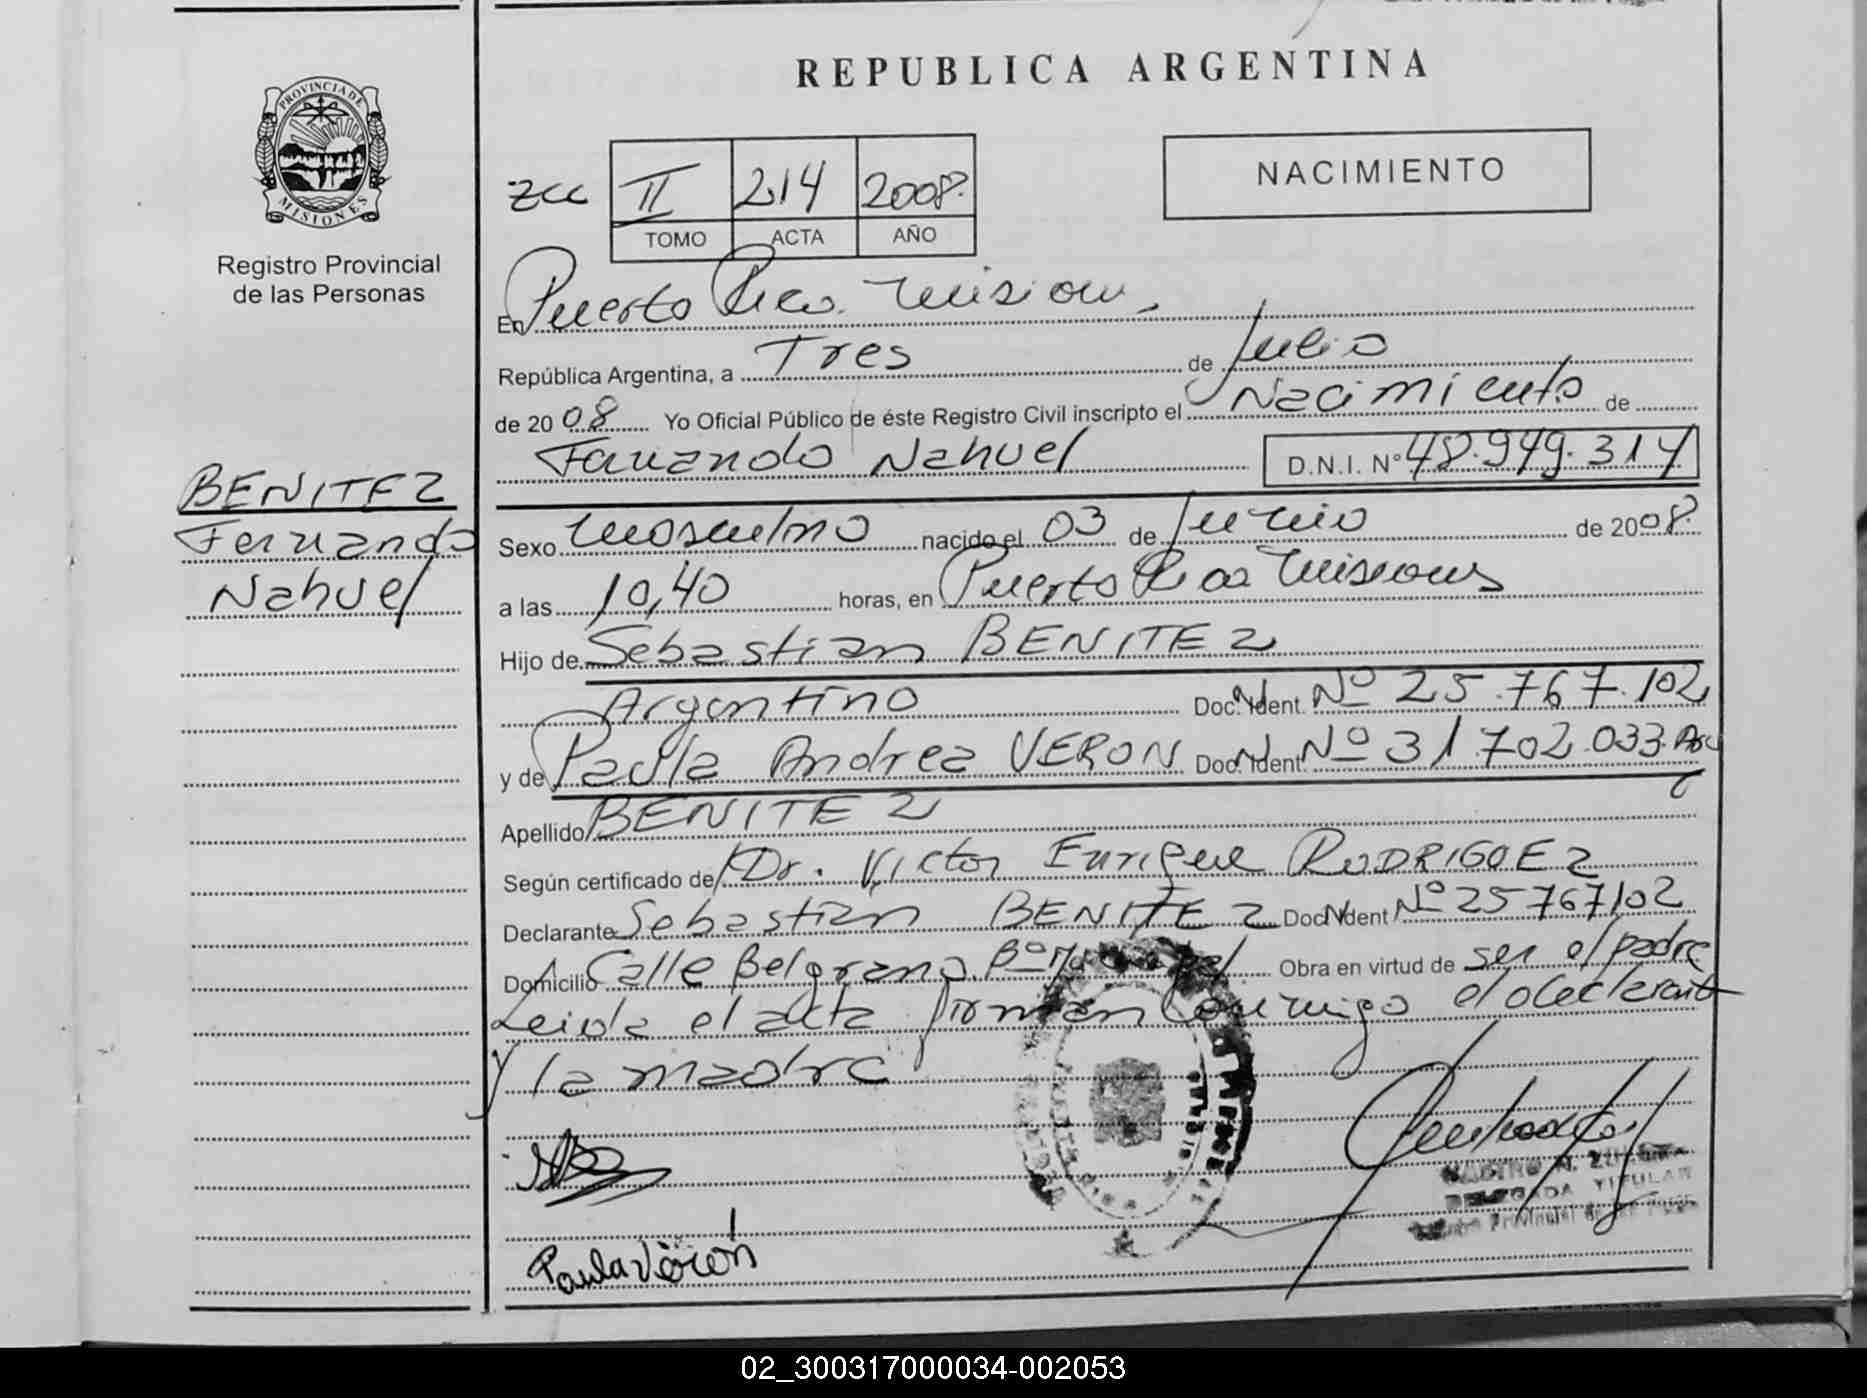 REPUBLICA ARGENTINA
PROVINCIA DE
MISIONES
Registro Provincial
de las Personas
NACIMIENTO
II 214 2008.
TOMO ACTA AÑO
En Puerto Rico. Misiones,
República Argentina, a Tres de Julio
de 2008 Yo Oficial Público de éste Registro Civil inscripto el Nacimiento de
Fernando Nahuel D.N.I. Nº 48.949.314
BENITEZ
Fernando
Nahuel
Sexo Masculino nacido el 03 de Junio de 2008.
a las 10,40 horas, en Puerto Rico Misiones
Hijo de Sebastian BENITEZ
Argentino Doc. Ident. Nº 25.767.102
y de Paula Andrea VERON Doc. Ident. Nº 31.702.033.
Apellido BENITEZ
Según certificado de Dr. Victor Enrique RODRIGUEZ
Declarante Sebastian BENITEZ Doc. Ident Nº 25767102
Domicilio Calle Belgrano. Bº Obra en virtud de ser el padre
Leida el acta firman conmigo el declarante
y la madre
Paula Verón
DELEGADA TITULAR
02_300317000034-002053